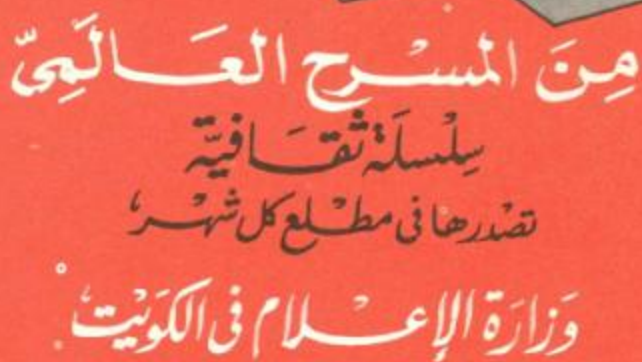 مِنَ المسْرح العَالَمِيّ
سِلْسلَة ثقَافيّة
تصْدرها فى مطْلع كل شهْر،
وَزارَة الإعْلام فى الكوَيْت